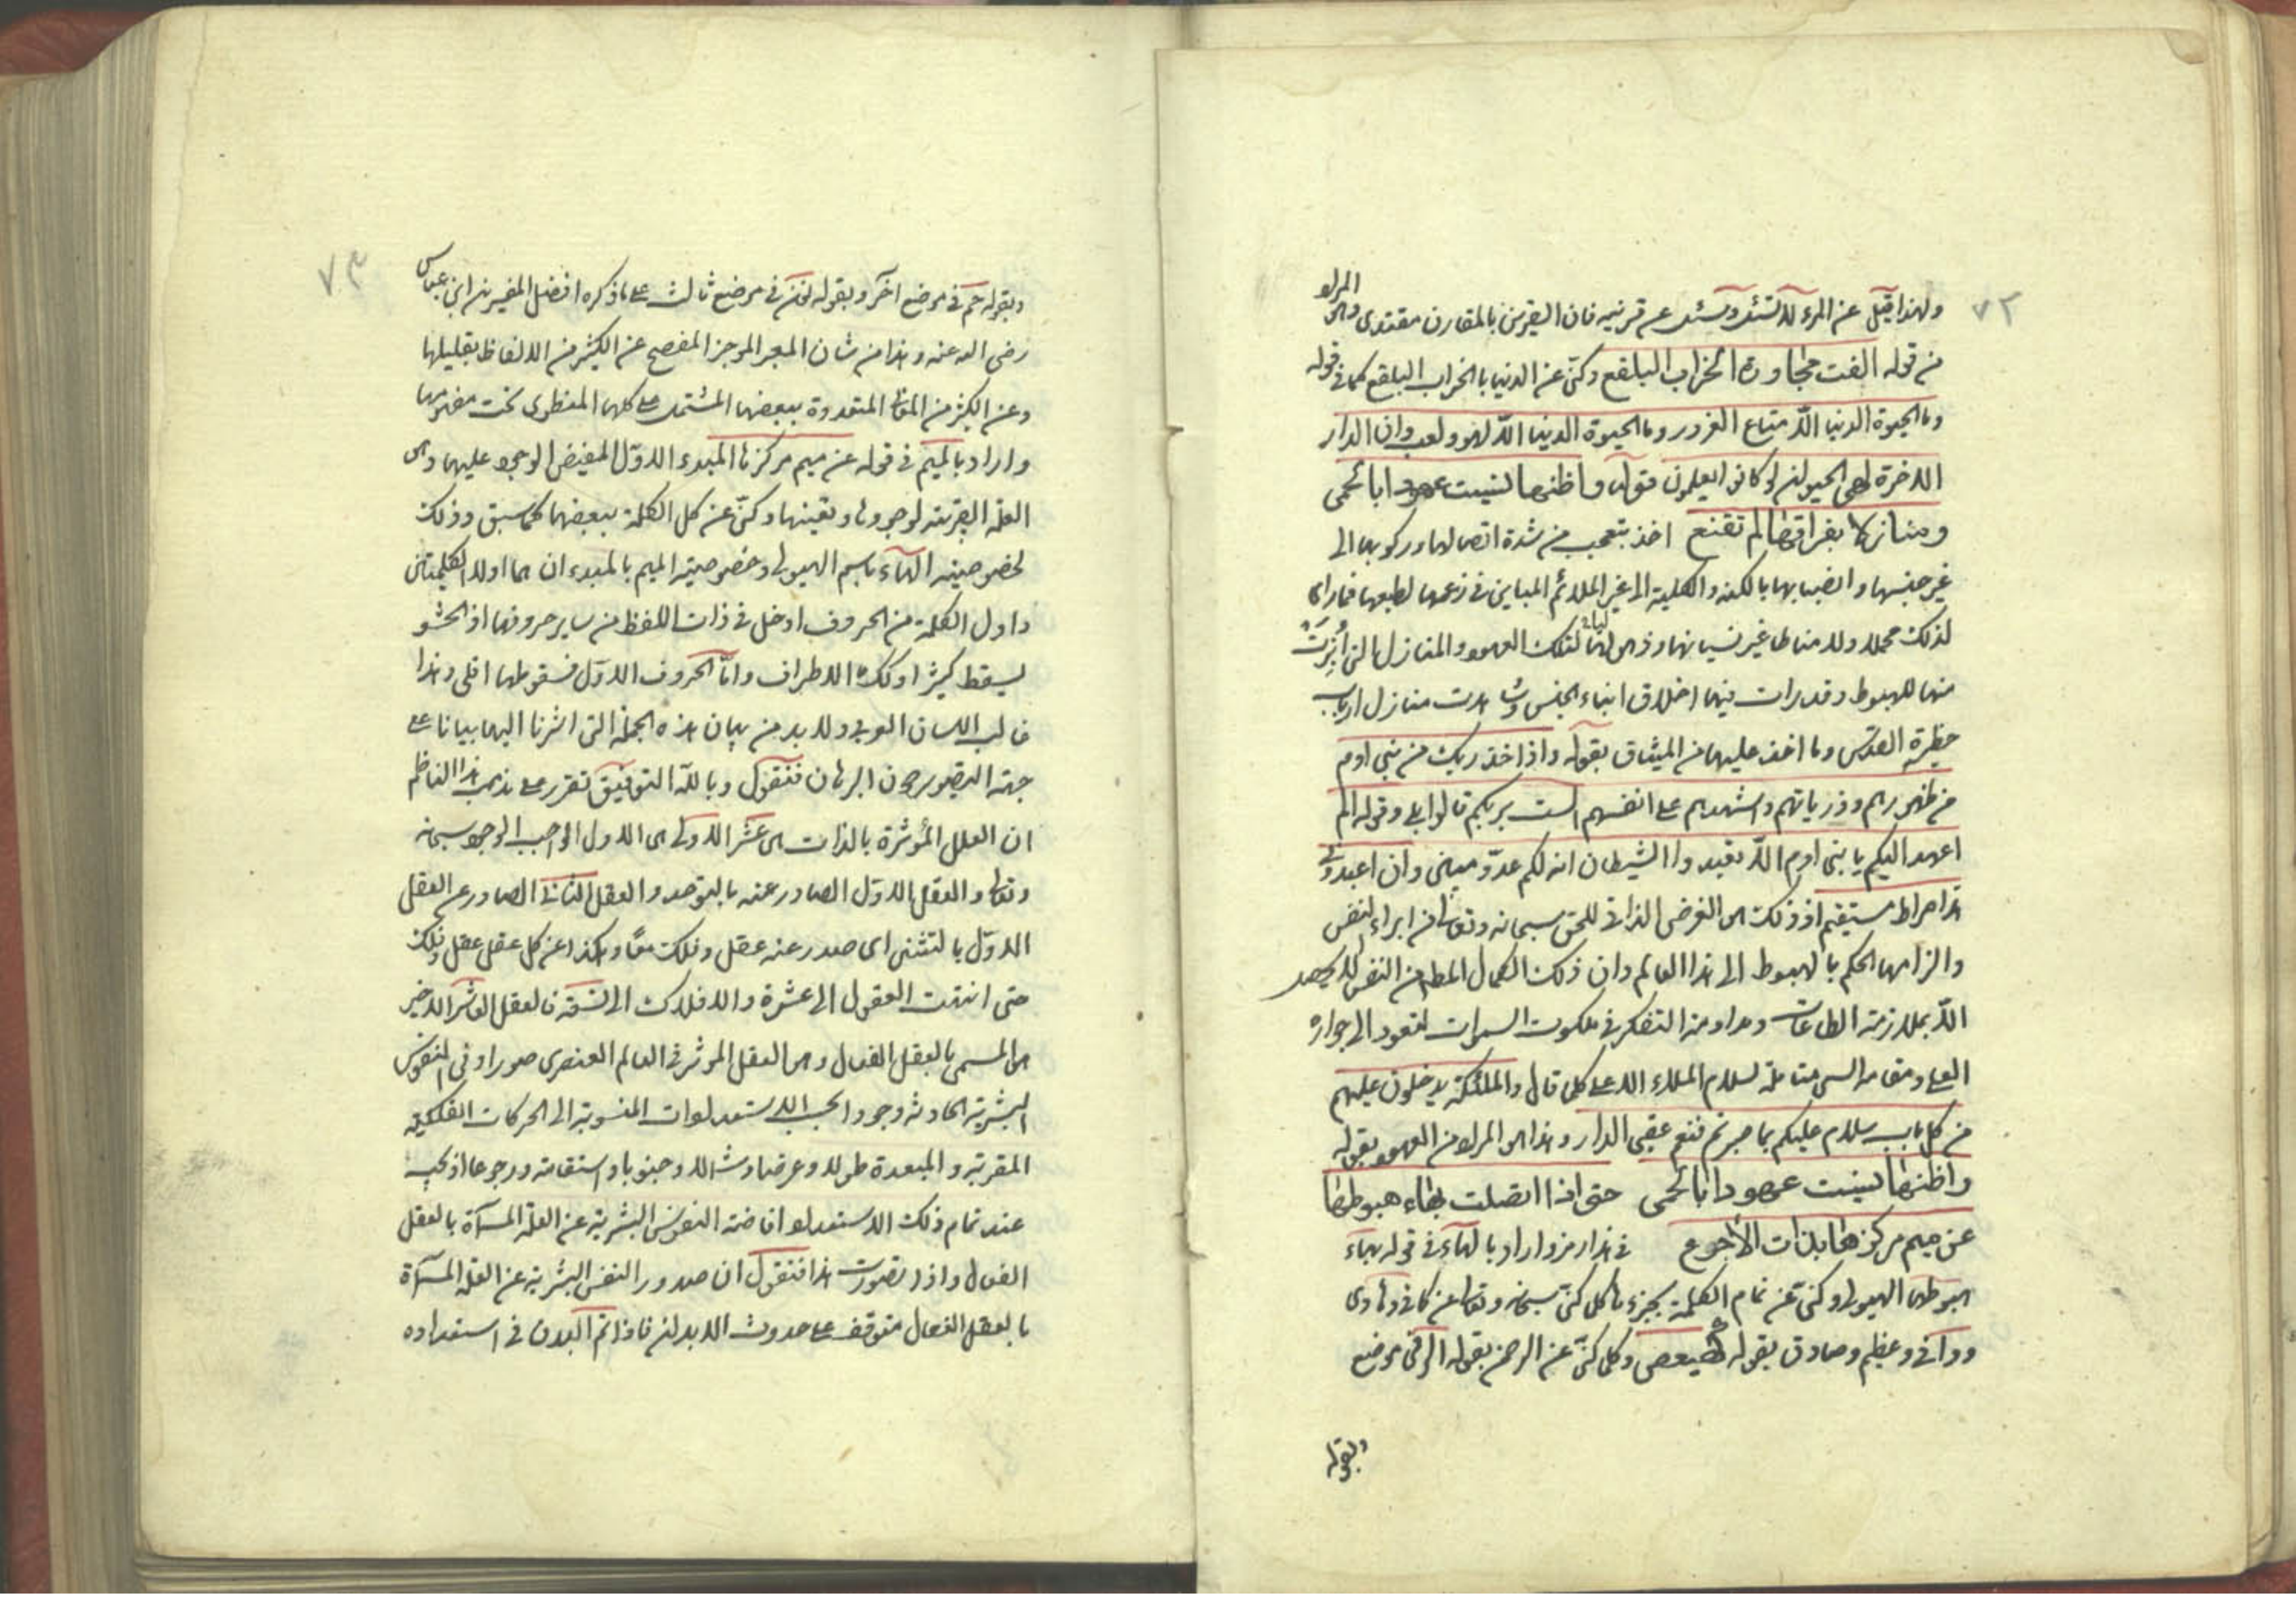 ٧٢
ولهذا قيل عن المرء لا تسئل وسئل عن قرينه فان القرين بالمقارن مقتدى وهو المراد
من قوله الفت مجاورة الخراب البلقع وكنّى عن الدنيا بالخراب البلقع كما في قوله
وما الحيوة الدنيا الّا متاع الغرور وما الحيوة الدنيا الّا لهو ولعب وان الدار
الاخرة لهى الحيوان لو كانوا يعلمون قوله واظنها نسيت عهودا بالحمى
ومنازلا بفراقها لم تقنع اخذ يتعجب من شدة اتصالها وركونها الى
غير جنسها وانصبابها بالكنه والكلية الى غير الملائم المباين في زعمها لطبعها فما راى
لذلك محملا ولا مناطا غير نسيانها وذهولها لتلك العهود والمنازل التى اُبْرِزَتْ
منها للهبوط وقد رات فيها اخلاق ابناء الجنس وشاهدت منازل ارباب
حظيرة القدس وما اخذ عليها من الميثاق بقوله واذ اخذ ربك من بنى ادم
من ظهورهم وذرياتهم واشهدهم على انفسهم الست بربكم قالوا بلى وقوله الم
اعهد اليكم يا بنى ادم الّا تعبدوا الشيطان انه لكم عدوّ مبين وان اعبدونى
هذا صراط مستقيم اذ ذلك هو الغرض الذاتى للحق سبحانه وتعالى من ابراء النفس
والزامها الحكم بالهبوط الى هذا العالم وان ذلك الكمال المطلوب من النفس لا يحصل
الّا بملازمة الطاعات ومداومة التفكر في ملكوت السموات لتعود الى جواره
العلى ومقامه السنى متاملة لسلام الملاء الاعلى كما قال والملئكة يدخلون عليهم
من كل باب سلام عليكم بما صبرتم فنعم عقبى الدار وهذا هو المراد من العهود بقوله
واظنها نسيت عهودا بالحمى حتى اذا اتصلت بهاء هبوطها
عن ميم مركزها بذات الاجرع في هذا رمز واراد بالهاء في قوله بهاء
هبوطها الهيولى وكنى عن تمام الكلمة بجزءها كما كنّى سبحانه وتعالى عن كافى وهادى
ووافى وعظيم وصادق بقوله كهيعص وكما كنّى عن الرحمن بقوله الر في موضع
وبقوله
٧٣
وبقوله حم في موضع آخر وبقوله نون في موضع ثالث على ما ذكره افضل المفسرين ابن عباس
رضى الله عنه وهذا من شان المعبر الموجز المفصح عن الكثير من الالفاظ بقليلها
وعن الكثير من المعانى المتعددة ببعضها المشتمل على كلها المنطوى تحت مفهومها
واراد بالميم في قوله عن ميم مركزها المبدء الاوّل المفيض الوجود عليها وهى
العلة القريبة لوجودها وتعينها وكنّى عن كل الكلمة ببعضها كما سبق وذلك
لخصوصية الهاء باسم الهيولى وخصوصية الميم بالمبدء ان هما اولا الكلمتين
واول الكلمة من الحروف ادخل في ذات اللفظ من ساير حروفها اذ الحشو
يسقط كثيرا وكذلك الاطراف وامّا الحروف الاوّل فسقوطها اقلى وهذا
غالب اللسان العربى ولا بد من بيان هذه الجملة التى اشرنا اليها بيانا على
جهة التصوير دون البرهان فنقول وبالله التوفيق تقرر على مذهب هذا الناظم
ان العلل المؤثرة بالذات هى عشر الاولى هى الاول الواجب الوجود سبحانه
وتعالى والعقل الاوّل الصادر عنه بالتوحد والعقل الثانى الصادر عن العقل
الاوّل بالتثنى اى صدر عنه عقل وفلك معًا وهكذا عن كل عقل عقل وفلك
حتى انتهت العقول الى عشرة والافلاك الى تسعة فالعقل العاشر الاخير
هو المسمى بالعقل الفعال وهو العقل الموثر في العالم العنصرى صورا وفى النفوس
البشرية الحادثة وجودا بحسب الاستعدادات المنسوبة الى الحركات الفلكية
المقربة والمبعدة طولا وعرضا وشمالا وجنوبا واستقامة ورجوعا اذ يجب
عند تمام ذلك الاستعداد افاضة النفوس البشرية عن العلة المسمّاة بالعقل
الفعال واذا تصورت هذا فنقول ان صدور النفس البشرية عن العلة المسمّاة
بالعقل الفعال متوقف على حدوث الابدان فاذا تم البدن في استعداده